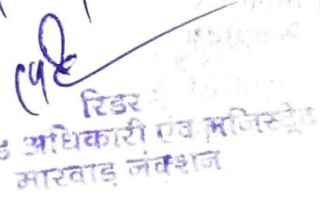 रिडर
ड अधिकारी एंव मजिस्ट्रेट
मारवाड़ जंक्शन